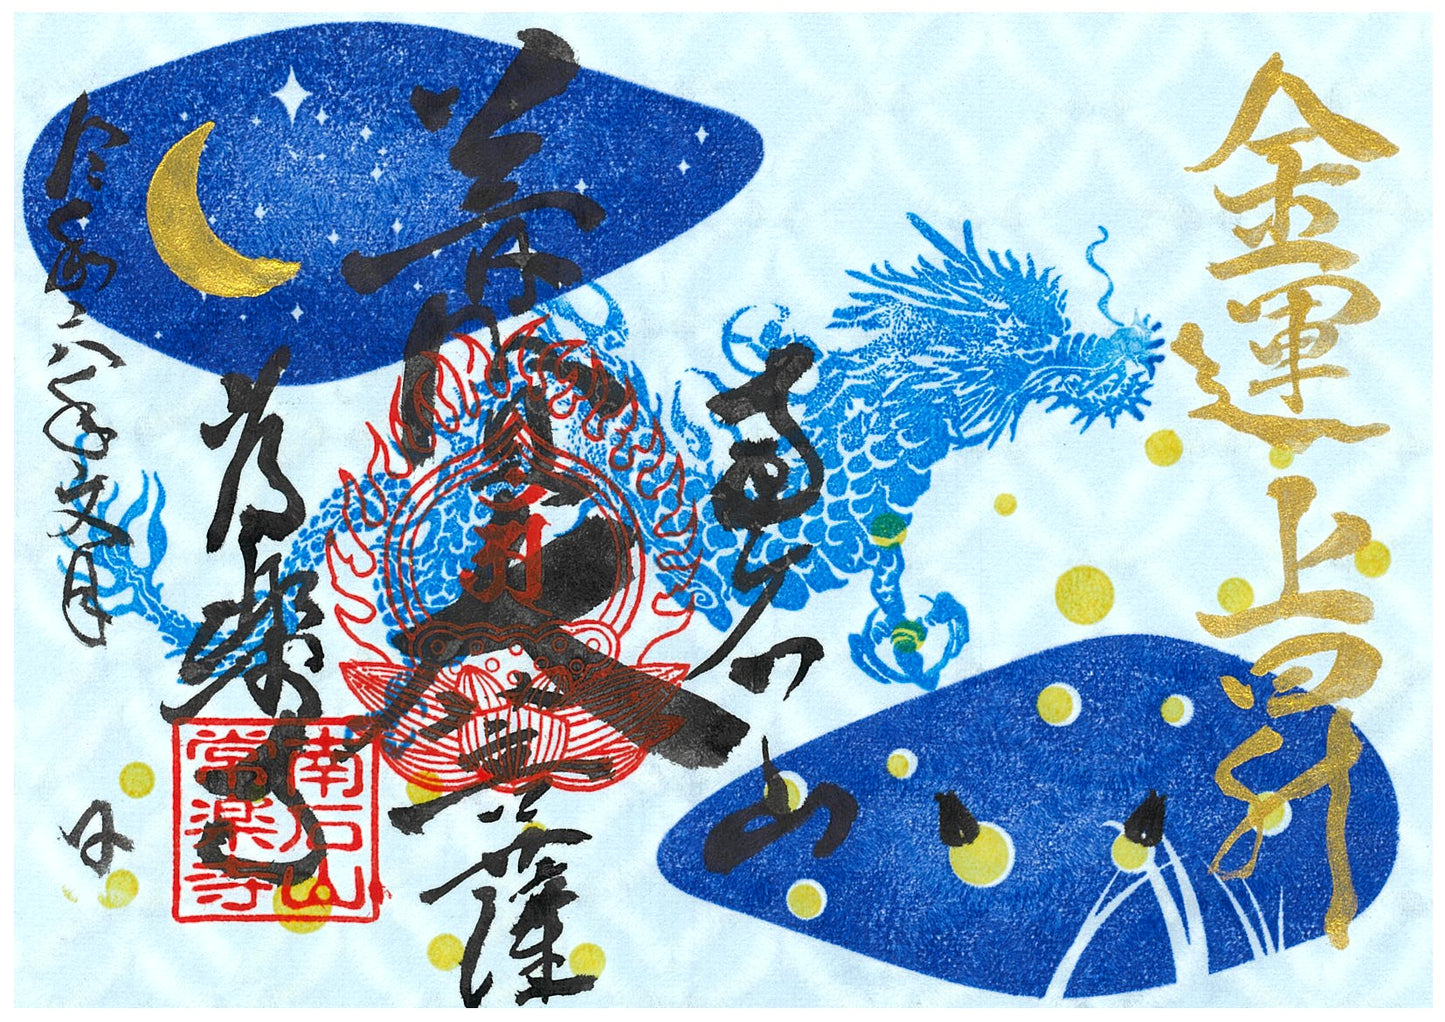 金運上昇
南石山
普賢菩薩
常樂寺
令和六年文月
日
南石山
常楽寺